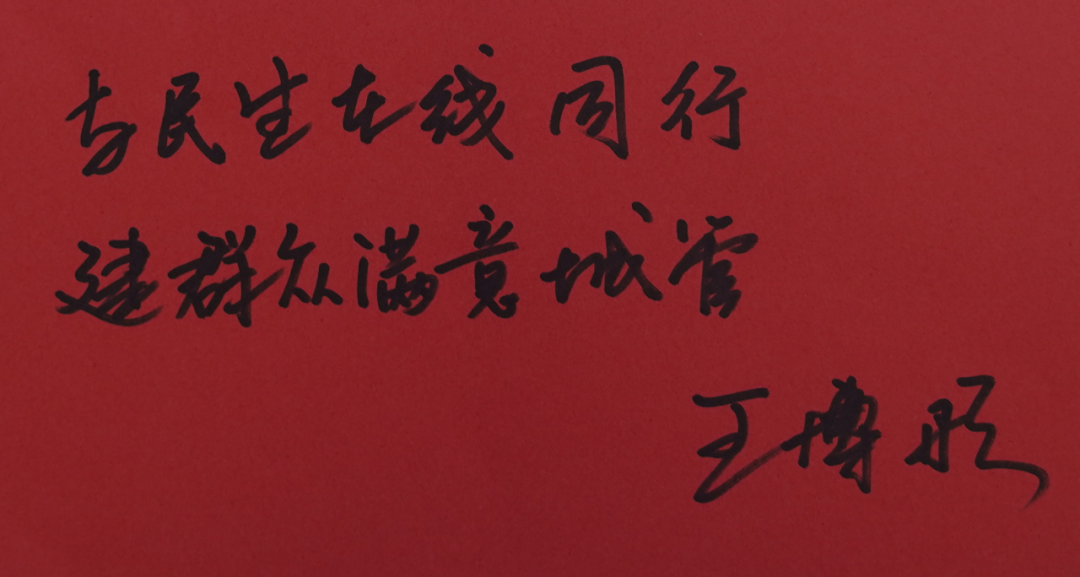 与民生在线同行
建群众满意城管
王博